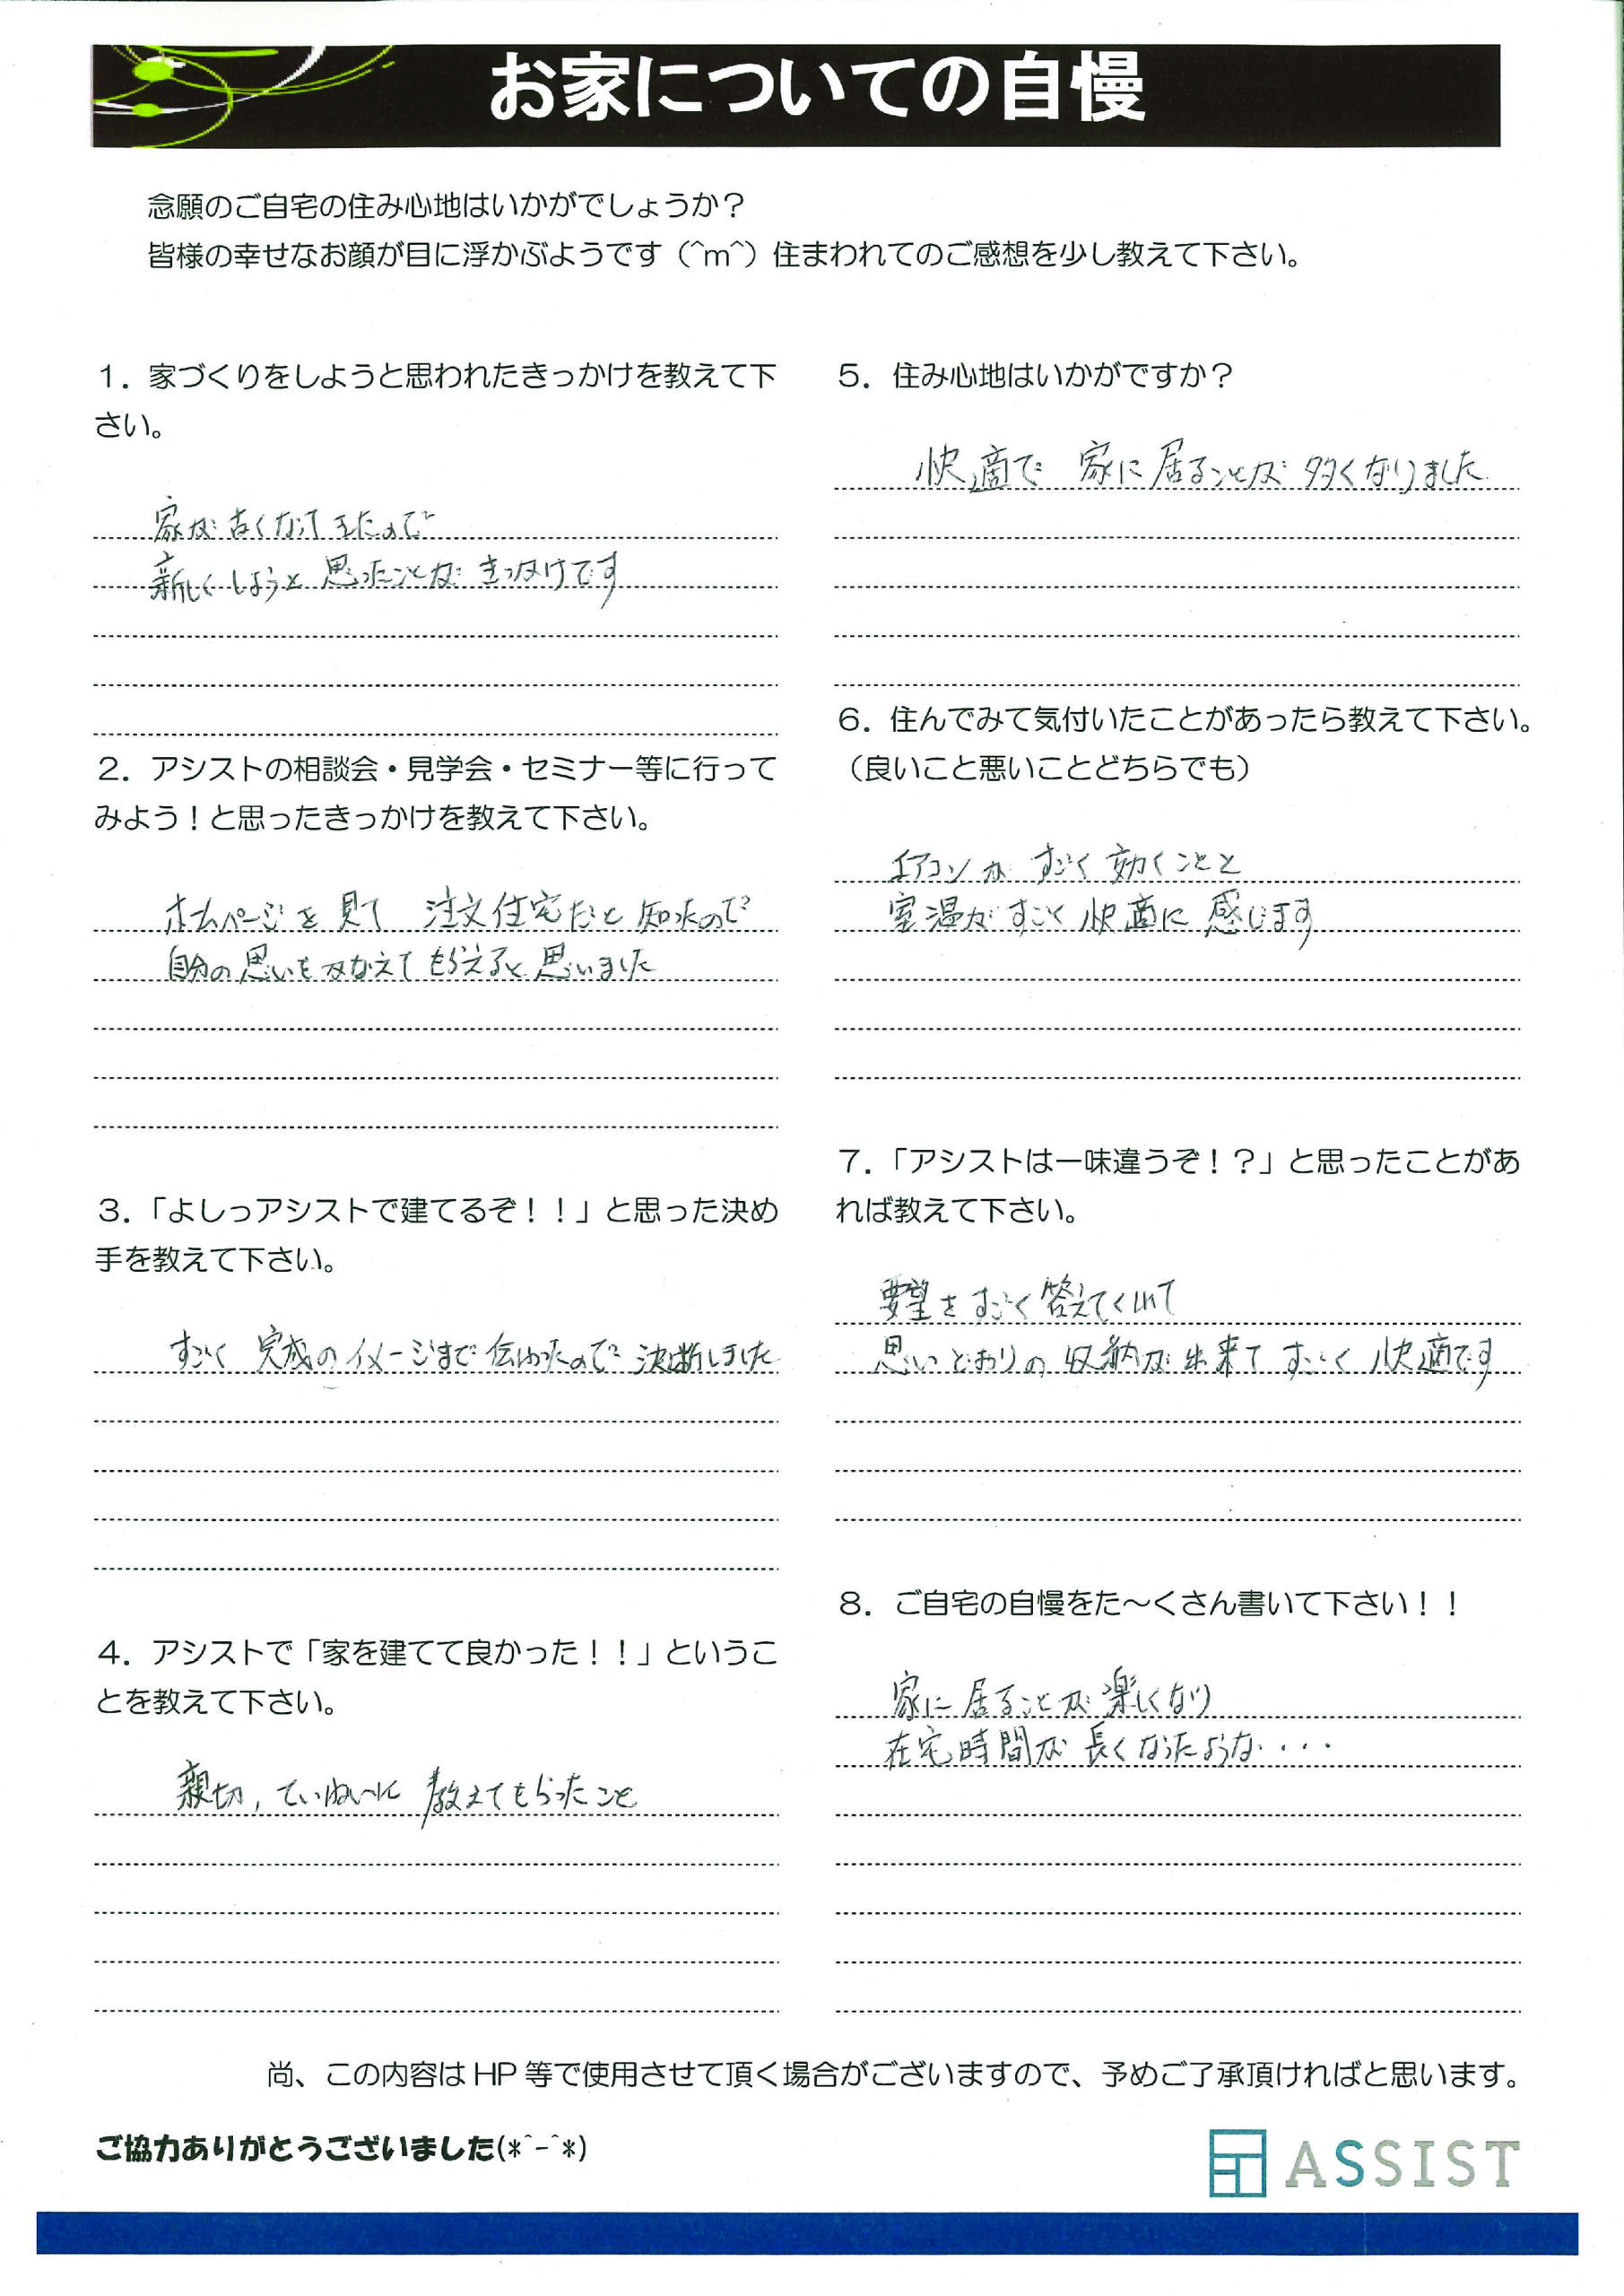 お家についての自慢
念願のご自宅の住み心地はいかがでしょうか？
皆様の幸せなお顔が目に浮かぶようです（^m^）住まわれてのご感想を少し教えて下さい。
１．家づくりをしようと思われたきっかけを教えて下
さい。
家が古くなってきたので
新しくしようと思ったことがきっかけです
２．アシストの相談会・見学会・セミナー等に行って
みよう！と思ったきっかけを教えて下さい。
ホームページを見て 注文住宅だと知ったので
自分の思いをかなえてもらえると思いました
３．「よしっアシストで建てるぞ！！」と思った決め
手を教えて下さい。
すごく 完成のイメージまで伝わったので 決断しました
４．アシストで「家を建てて良かった！！」というこ
とを教えて下さい。
親切，ていねいに 教えてもらったこと
５．住み心地はいかがですか？
快適で 家に居ることが 多くなりました
６．住んでみて気付いたことがあったら教えて下さい。
（良いこと悪いことどちらでも）
エアコンが すごく 効くことと
室温がすごく 快適に 感じます
７．「アシストは一味違うぞ！？」と思ったことがあ
れば教えて下さい。
要望をすごく答えてくれて
思いどおりの収納が出来てすごく快適です
８．ご自宅の自慢をた～くさん書いて下さい！！
家に居ることが楽しくなり
在宅時間が 長くなったような・・・
尚、この内容は HP 等で使用させて頂く場合がございますので、予めご了承頂ければと思います。
ご協力ありがとうございました(*^-^*)
ASSIST